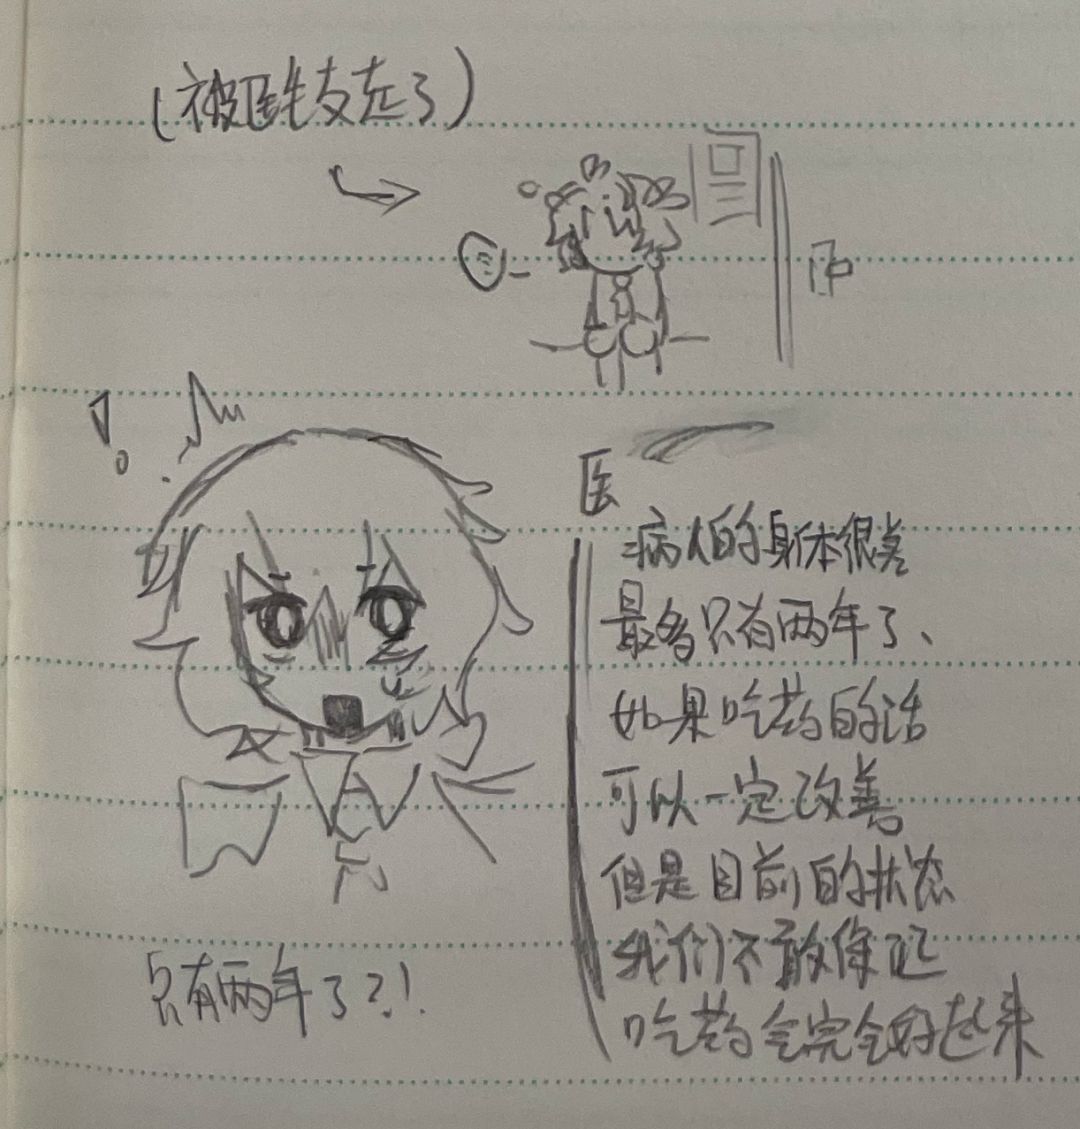 (被医生支走了)
医
病人的身体很差
最多只有两年了、
如果吃药的话
可以一定改善
但是目前的状态
我们不敢保证
吃药会完全好起来
只有两年了?!